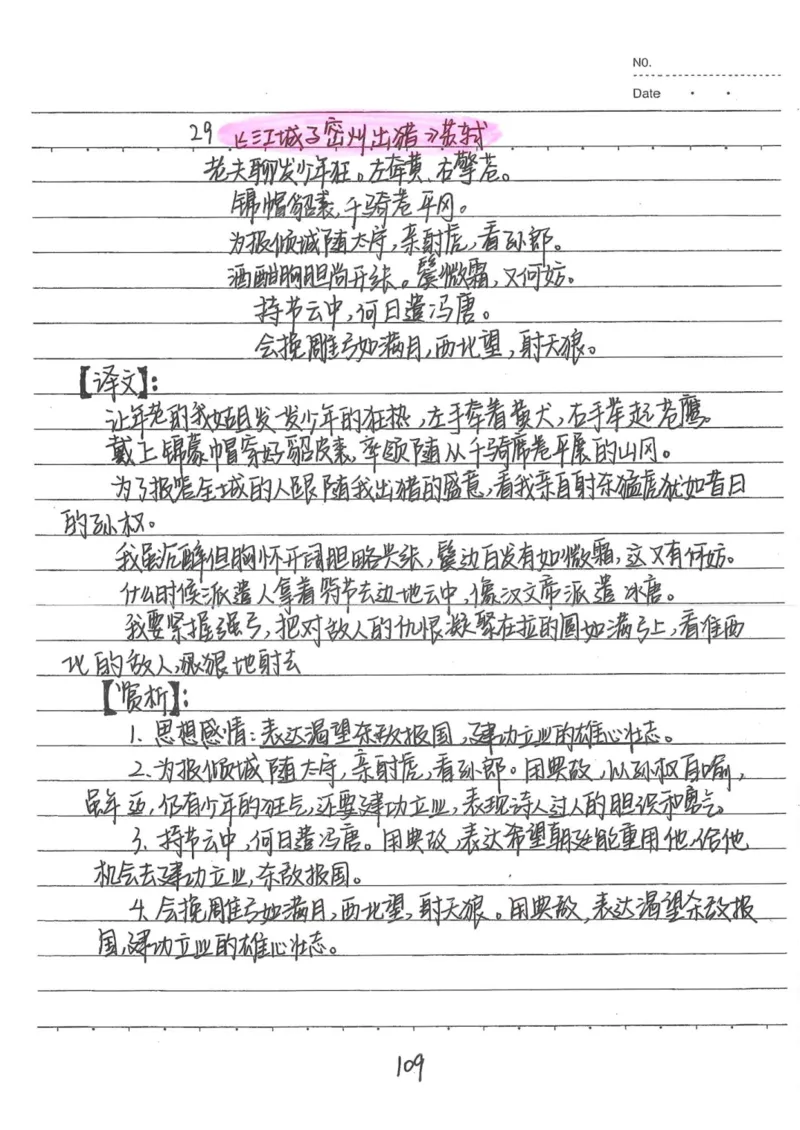 NO.
Date
29 《江城子密州出猎》苏轼
老夫聊发少年狂。左牵黄,右擎苍。
锦帽貂裘,千骑卷平冈。
为报倾城随太守,亲射虎,看孙郎。
酒酣胸胆尚开张。鬓微霜,又何妨。
持节云中,何日遣冯唐。
会挽雕弓如满月,西北望,射天狼。
【译文】:
让年老的我姑且发一发少年的狂热,左手牵着黄犬,右手举起苍鹰。
戴上锦蒙帽穿好貂皮裘,率领随从千骑席卷平展的山冈。
为了报答全城的人跟随我出猎的盛意,看我亲自射杀猛虎犹如昔日
的孙权。
我虽沉醉但胸怀开阔胆略兴张,鬓边白发有如微霜,这又有何妨。
什么时候派遣人拿着符节去边地云中,像汉文帝派遣冰唐。
我要紧握强弓,把对敌人的仇恨凝聚在拉的圆如满弓上,看准西
北的敌人,狠狠地射去
【赏析】:
1. 思想感情:表达渴望杀敌报国,建功立业的雄心壮志。
2. 为报倾城随太守,亲射虎,看孙郎。用典故,以孙权自喻,
虽年迈,仍有少年的狂气,还要建功立业,表现诗人过人的胆识和勇气。
3. 持节云中,何日遣冯唐。用典故,表达希望朝廷能重用他,给他
机会去建功立业,杀敌报国。
4. 会挽雕弓如满月,西北望,射天狼。用典故,表达渴望杀敌报
国,建功立业的雄心壮志。
109